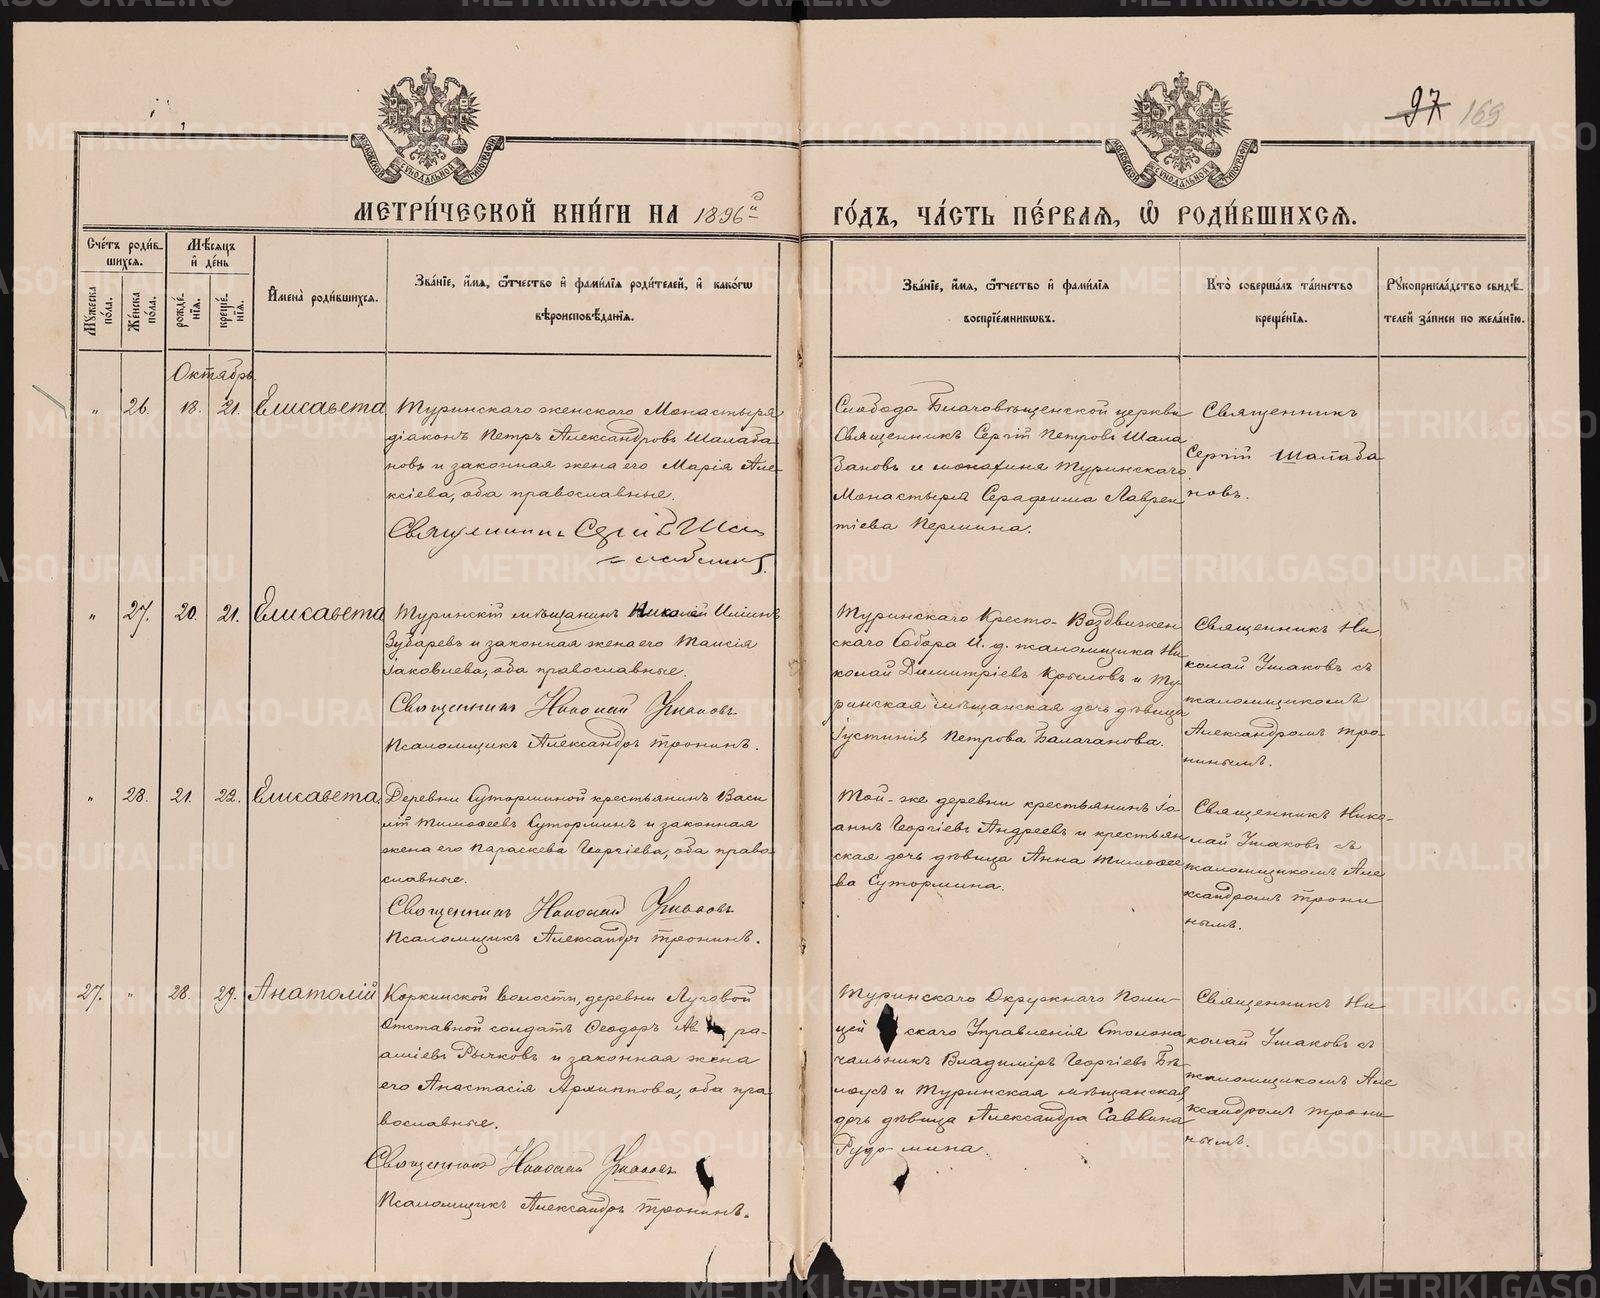 97 169
МОСКОВСКОЙ СѴНОДАЛЬНОЙ ТИПОГРАФІИ
МОСКОВСКОЙ СѴНОДАЛЬНОЙ ТИПОГРАФІИ
МЕТРИ́ЧЕСКОЙ КНИ́ГИ НА 1896й ГО́ДЪ, ЧА́СТЬ ПЕ́РВАѦ, Ѡ҆ РОДИ́ВШИХСѦ.
Сче́тъ роди́в-
шихсѧ.
Мꙋ́жеска по́ла.
Же́нска по́ла.
Мѣ́сѧцъ
и҆ де́нь
рожде́-
нїѧ.
креще́-
нїѧ.
И҆мена̀ роди́вшихсѧ.
Зва́нїе, и҆́мѧ, ѻ҆́тчество и҆ фами́лїѧ роди́телей, и҆ како́гѡ
вѣроисповѣ́данїѧ.
Зва́нїе, и҆́мѧ, ѻ҆́тчество и҆ фами́лїѧ
воспрїе́мникѡвъ.
Кто̀ соверша́лъ та́инство
креще́нїѧ.
Рꙋкоприкла́дство свидѣ́-
телей за́писи по жела́нїю.
Октябрь.
" 26. 18. 21. Елисавета
Туринскаго женскаго Монастыря
діаконъ Петръ Александровъ Шалаба
новъ и законная жена его Марія Але-
ксіева, оба православные.
Священникъ Сергій Ша
=лабановъ.
Слободо-Благовѣщенской церкви
Священникъ Сергій Петровъ Шала
бановъ и монахиня Туринскаго
Монастыря Серафима Лаврен
тіева Пермина.
Священникъ
Сергій Шалаба
новъ.
" 27. 20. 21. Елисавета
Туринскій мѣщанинъ Николай Ильинъ
Зубаревъ и законная жена его Таисія
Іаковлева, оба православные.
Священникъ Николай Ушаковъ
Псаломщикъ Александръ Тронинъ.
Туринскаго Кресто-Воздвижен
скаго Собора И. д. псаломщика Ни
колай Димитріевъ Крыловъ и Ту-
ринская мѣщанская дочь дѣвица
Іустинія Петрова Балаганова.
Священникъ Ни
колай Ушаковъ съ
псаломщикомъ
Александромъ Тро-
нинымъ.
" 28. 21. 22. Елисавета
Деревни Суторминой крестьянинъ Васи
лій Тимофеевъ Суторминъ и законная
жена его Параскева Георгіева, оба право-
славные.
Священникъ Николай Ушаковъ
Псаломщикъ Александръ Тронинъ.
Той-же деревни крестьянинъ Іо
аннъ Георгіевъ Андреевъ и крестьян
ская дочь дѣвица Анна Тимофее
ва Сутормина.
Священникъ Нико-
лай Ушаковъ съ
псаломщикомъ Але
ксандромъ Трони
нымъ.
27. " 28. 29. Анатолій
Коркинской волости, деревни Луговой
Отставной солдатъ Феодоръ Ав ра-
аміевъ Рычковъ и законная жена
его Анастасія Архиппова, оба пра
вославные.
Священникъ Николай Ушаковъ
Псаломщикъ Александръ Тронинъ.
Туринскаго Окружнаго Поли-
цей скаго Управленія Столона
чальникъ Владиміръ Георгіевъ Бѣ-
лоусъ и Туринская мѣщанская
дочь дѣвица Александра Саввина
Рудо мина.
Священникъ Ни
колай Ушаковъ съ
псаломщикомъ Але
ксандромъ Трони
нымъ.
METRIKI.GASO-URAL.RU